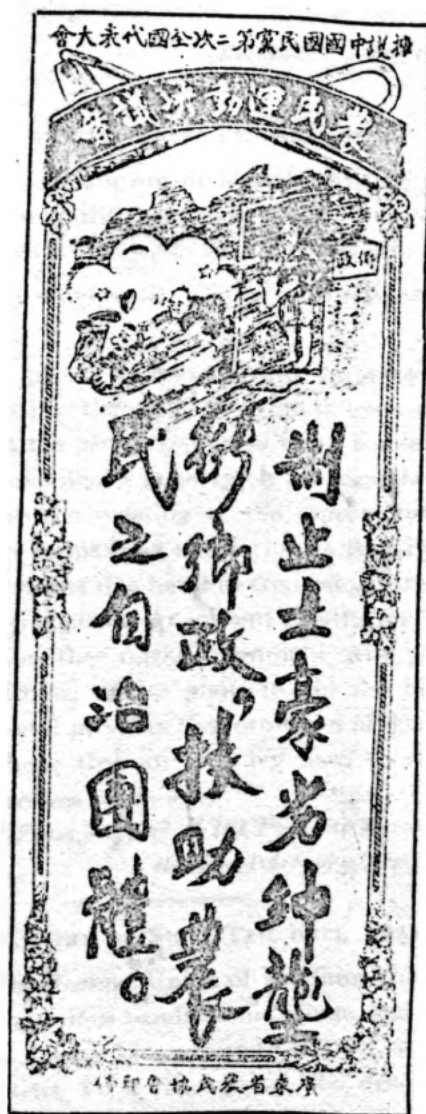 擁護中國國民黨第二次全國代表大會
農民運動決議案
鄉政
制止土豪劣紳壟
斷鄉政，扶助農
民之自治團體。
廣東省農民協會印行